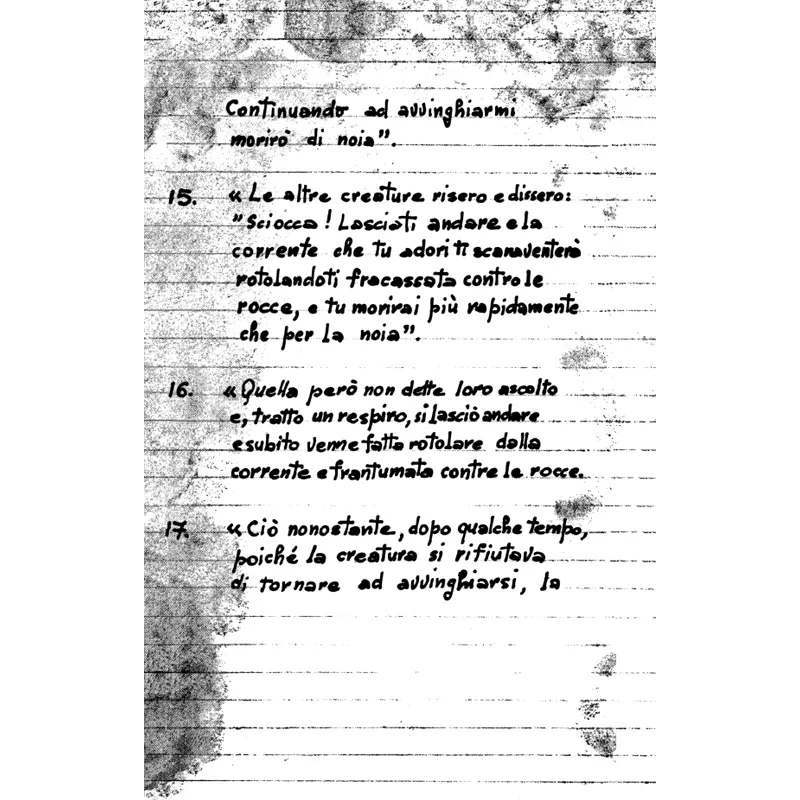 Continuando ad avvinghiarmi
morirò di noia”.
15. « Le altre creature risero e dissero:
”Sciocca! Lasciati andare e la
corrente che tu adori ti scaraventerà
rotolandoti fracassata contro le
rocce, e tu morirai più rapidamente
che per la noia”.
16. « Quella però non dette loro ascolto
e, tratto un respiro, si lasciò andare
e subito venne fatta rotolare dalla
corrente e frantumata contre le rocce.
17. « Ciò nonostante, dopo qualche tempo,
poiché la creatura si rifiutava
di tornare ad avvinghiarsi, la